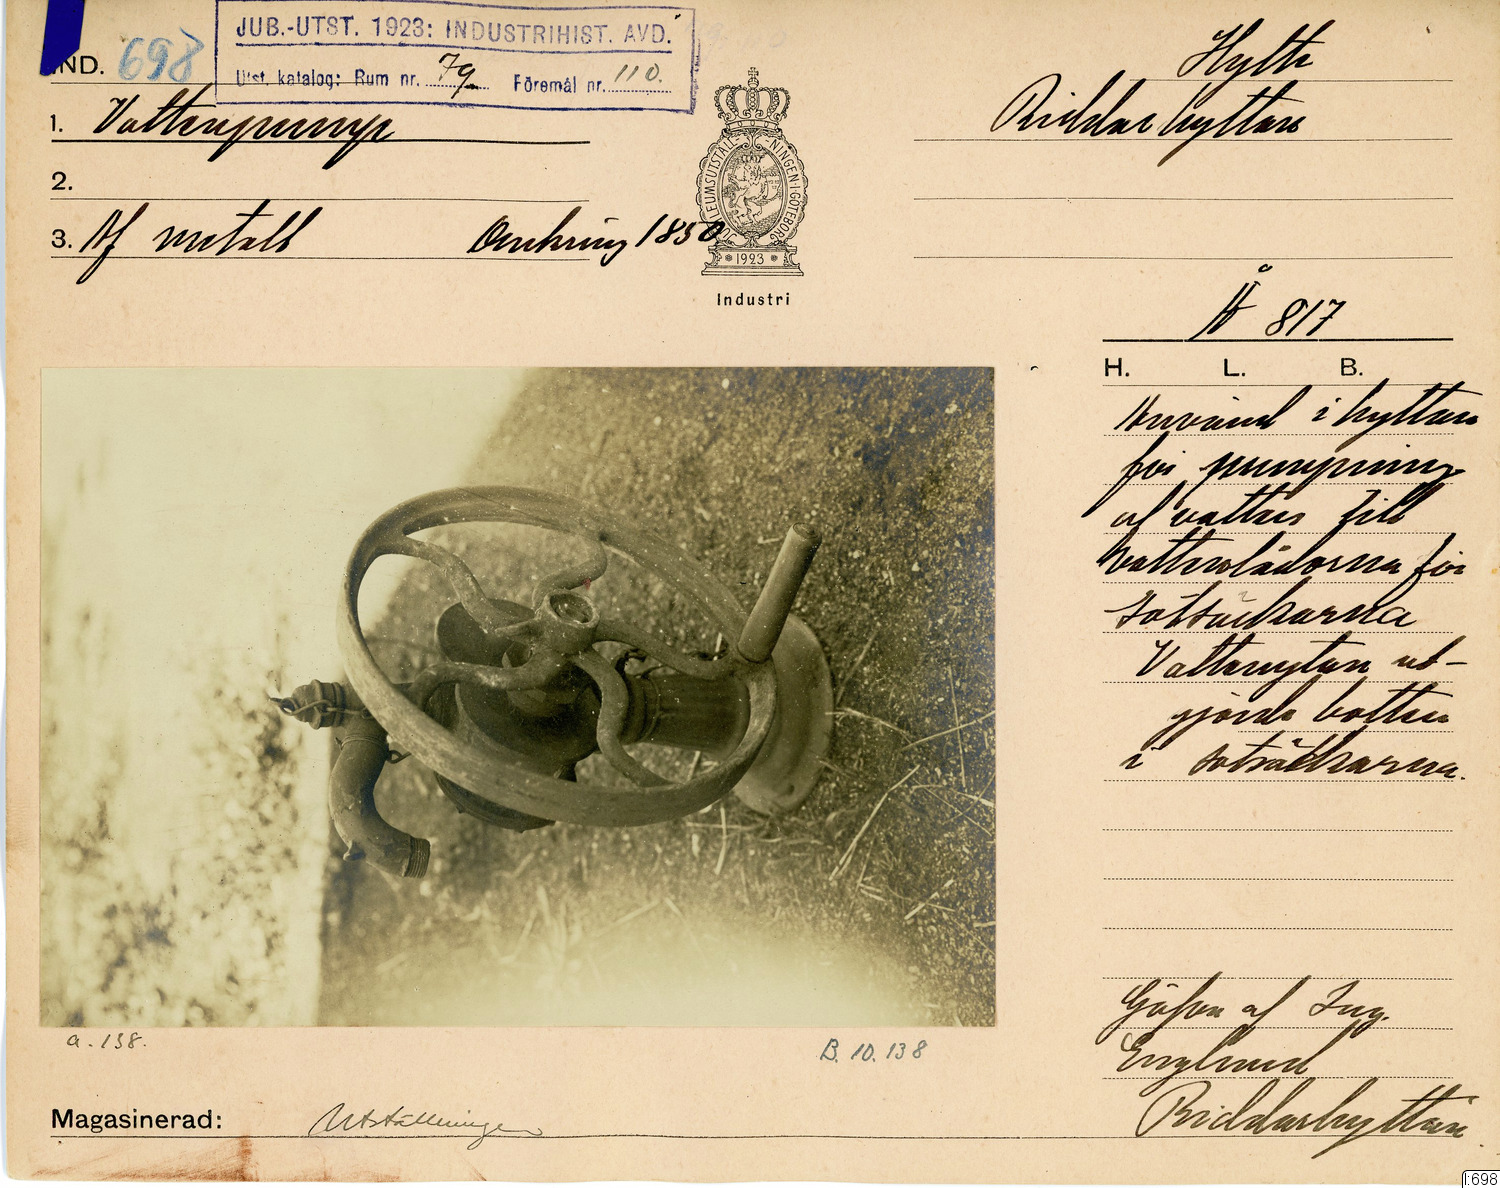 JUB.-UTST. 1923: INDUSTRIHIST. AVD.
Utst. katalog: Rum nr. 79 Föremål nr. 110.
IND. 698
1. Vattenpump
2.
3. Af metall Omkring 1850
JUBILEUMSUTSTÄLLNINGEN I GÖTEBORG
1923
Industri
Hytte
Riddarhyttan
Å 817
H. L. B.
Använd i hyttan
för pumpning
af vatten till
vattenlådorna för
sotsäckarna
Vattenytan ut-
gjorde botten
i sotsäckarna.
Gåfva af Ing.
Englund
Riddarhyttan
a. 138.
B. 10. 138
Magasinerad: Utställningen
I:698